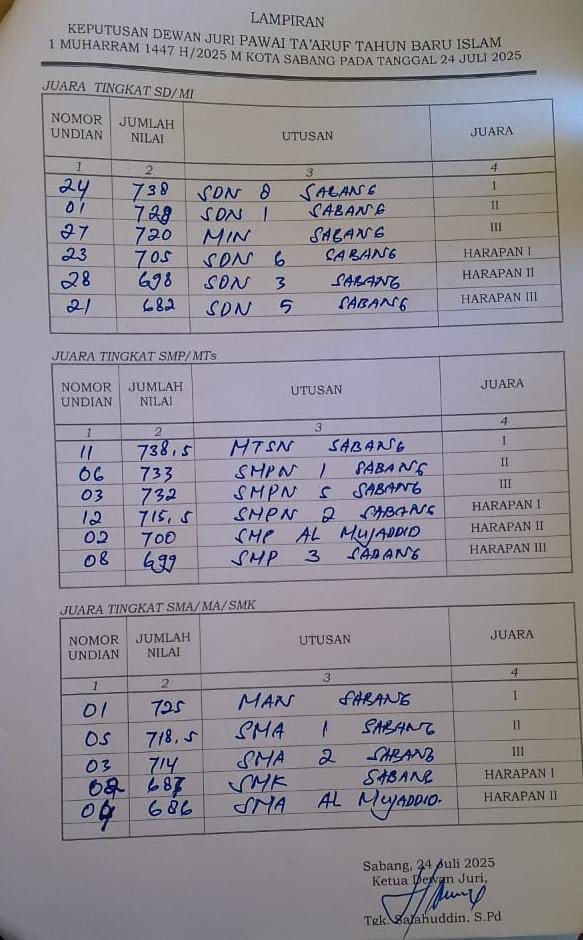 LAMPIRAN
KEPUTUSAN DEWAN JURI PAWAI TA'ARUF TAHUN BARU ISLAM
1 MUHARRAM 1447 H/2025 M KOTA SABANG PADA TANGGAL 24 JULI 2025
JUARA TINGKAT SD/MI
NOMOR UNDIAN JUMLAH NILAI UTUSAN JUARA
1 2 3 4
24 738 SDN 8 SABANG I
01 728 SDN 1 SABANG II
27 720 MIN SABANG III
23 705 SDN 6 SABANG HARAPAN I
28 698 SDN 3 SABANG HARAPAN II
21 682 SDN 5 SABANG HARAPAN III
JUARA TINGKAT SMP/MTs
NOMOR UNDIAN JUMLAH NILAI UTUSAN JUARA
1 2 3 4
11 738,5 MTSN SABANG I
06 733 SMPN 1 SABANG II
03 732 SMPN 5 SABANG III
12 715,5 SMPN 2 SABANG HARAPAN I
02 700 SMP AL MUJADDID HARAPAN II
08 699 SMP 3 SABANG HARAPAN III
JUARA TINGKAT SMA/MA/SMK
NOMOR UNDIAN JUMLAH NILAI UTUSAN JUARA
1 2 3 4
01 725 MAN SABANG I
05 718,5 SMA 1 SABANG II
03 714 SMA 2 SABANG III
687 SMK SABANG HARAPAN I
04 686 SMA AL MUJADDID. HARAPAN II
Sabang, 24 Juli 2025
Ketua Dewan Juri,
Tgk. Salahuddin, S.Pd